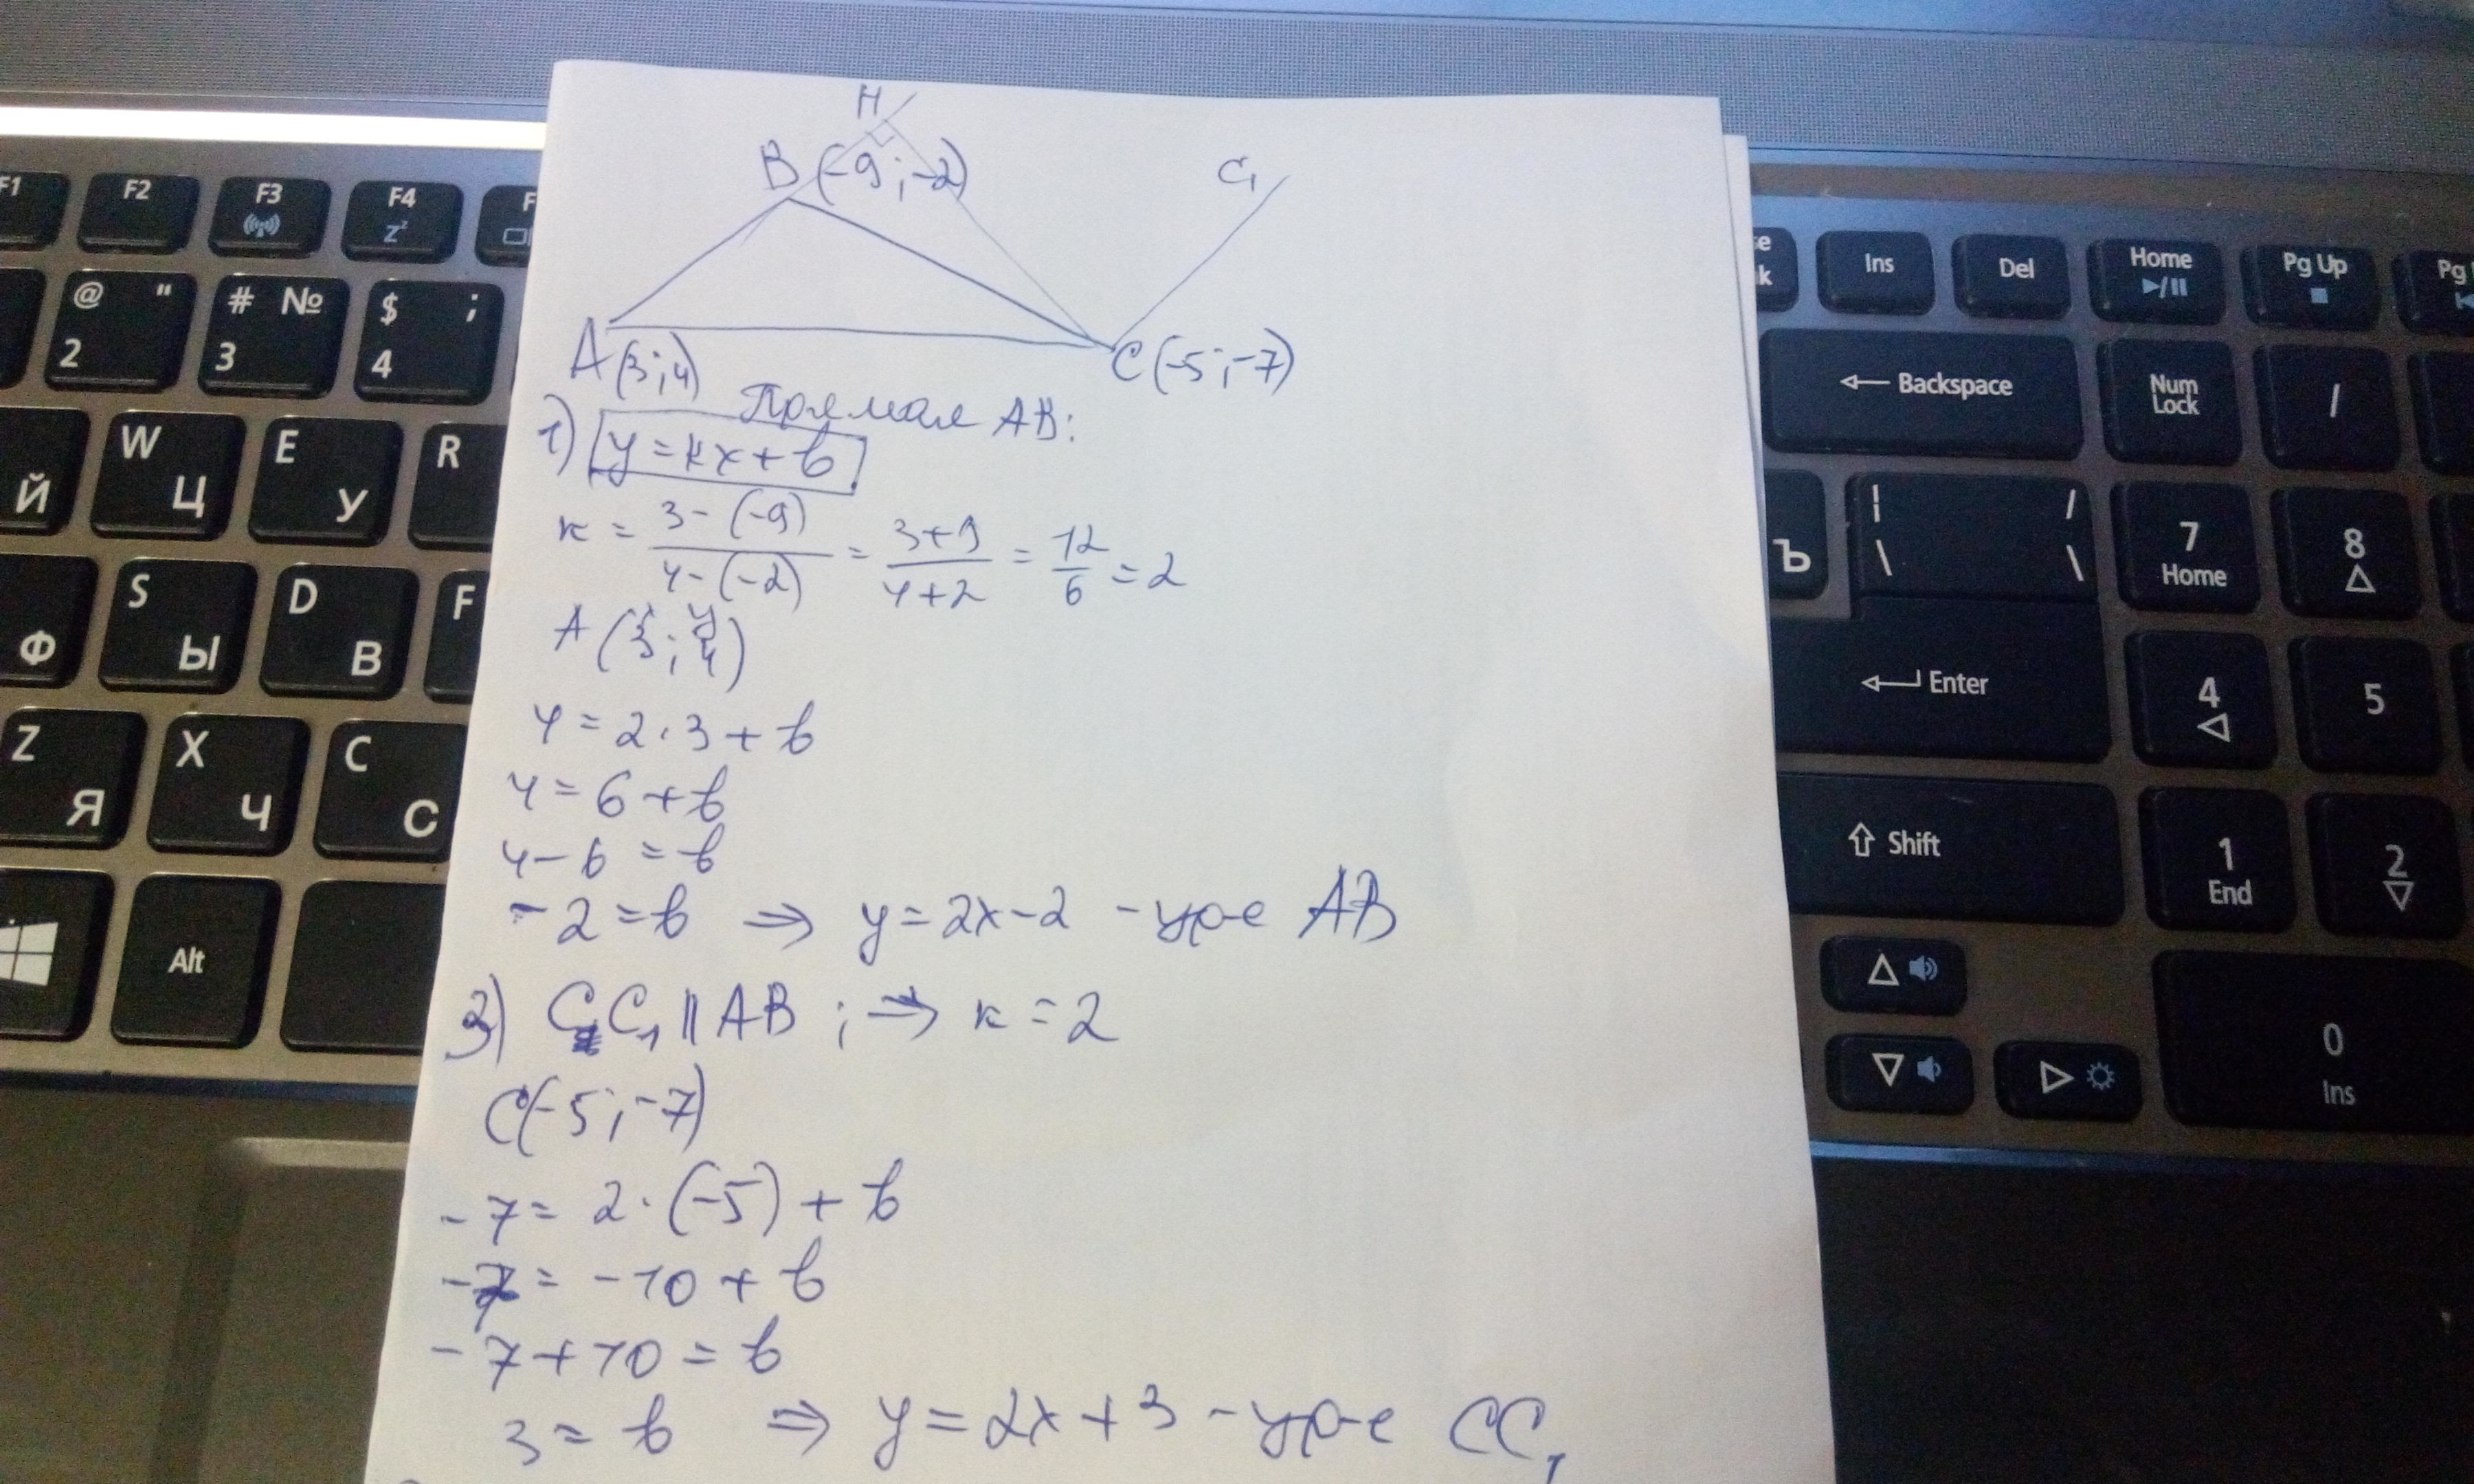 H
B (-9; -2)
C₁
A (3; 4)
C (-5; -7)
Прямая AB:
1) y = kx + b
k = (3 - (-9)) / (4 - (-2)) = (3 + 9) / (4 + 2) = 12 / 6 = 2
x y
A (3; 4)
4 = 2 · 3 + b
4 = 6 + b
4 - 6 = b
- 2 = b ⇒ y = 2x - 2 - ур-е AB
3) CC₁ || AB ; ⇒ k = 2
C (-5; -7)
- 7 = 2 · (-5) + b
- 7 = - 10 + b
- 7 + 10 = b
3 = b ⇒ y = 2x + 3 - ур-е CC₁
F1
F2
F3
F4
zᶻ
F
Ins
Del
Home
Pg Up
Pg
@ "
2
# №
3
$ ;
4
← Backspace
Num Lock
/
W Ц
E У
R
Й
Ъ
| /
\ \
7 Home
8
S Ы
D В
F
Ф
← Enter
4
5
Z Я
X Ч
C С
Shift
1 End
2
Alt
0 Ins